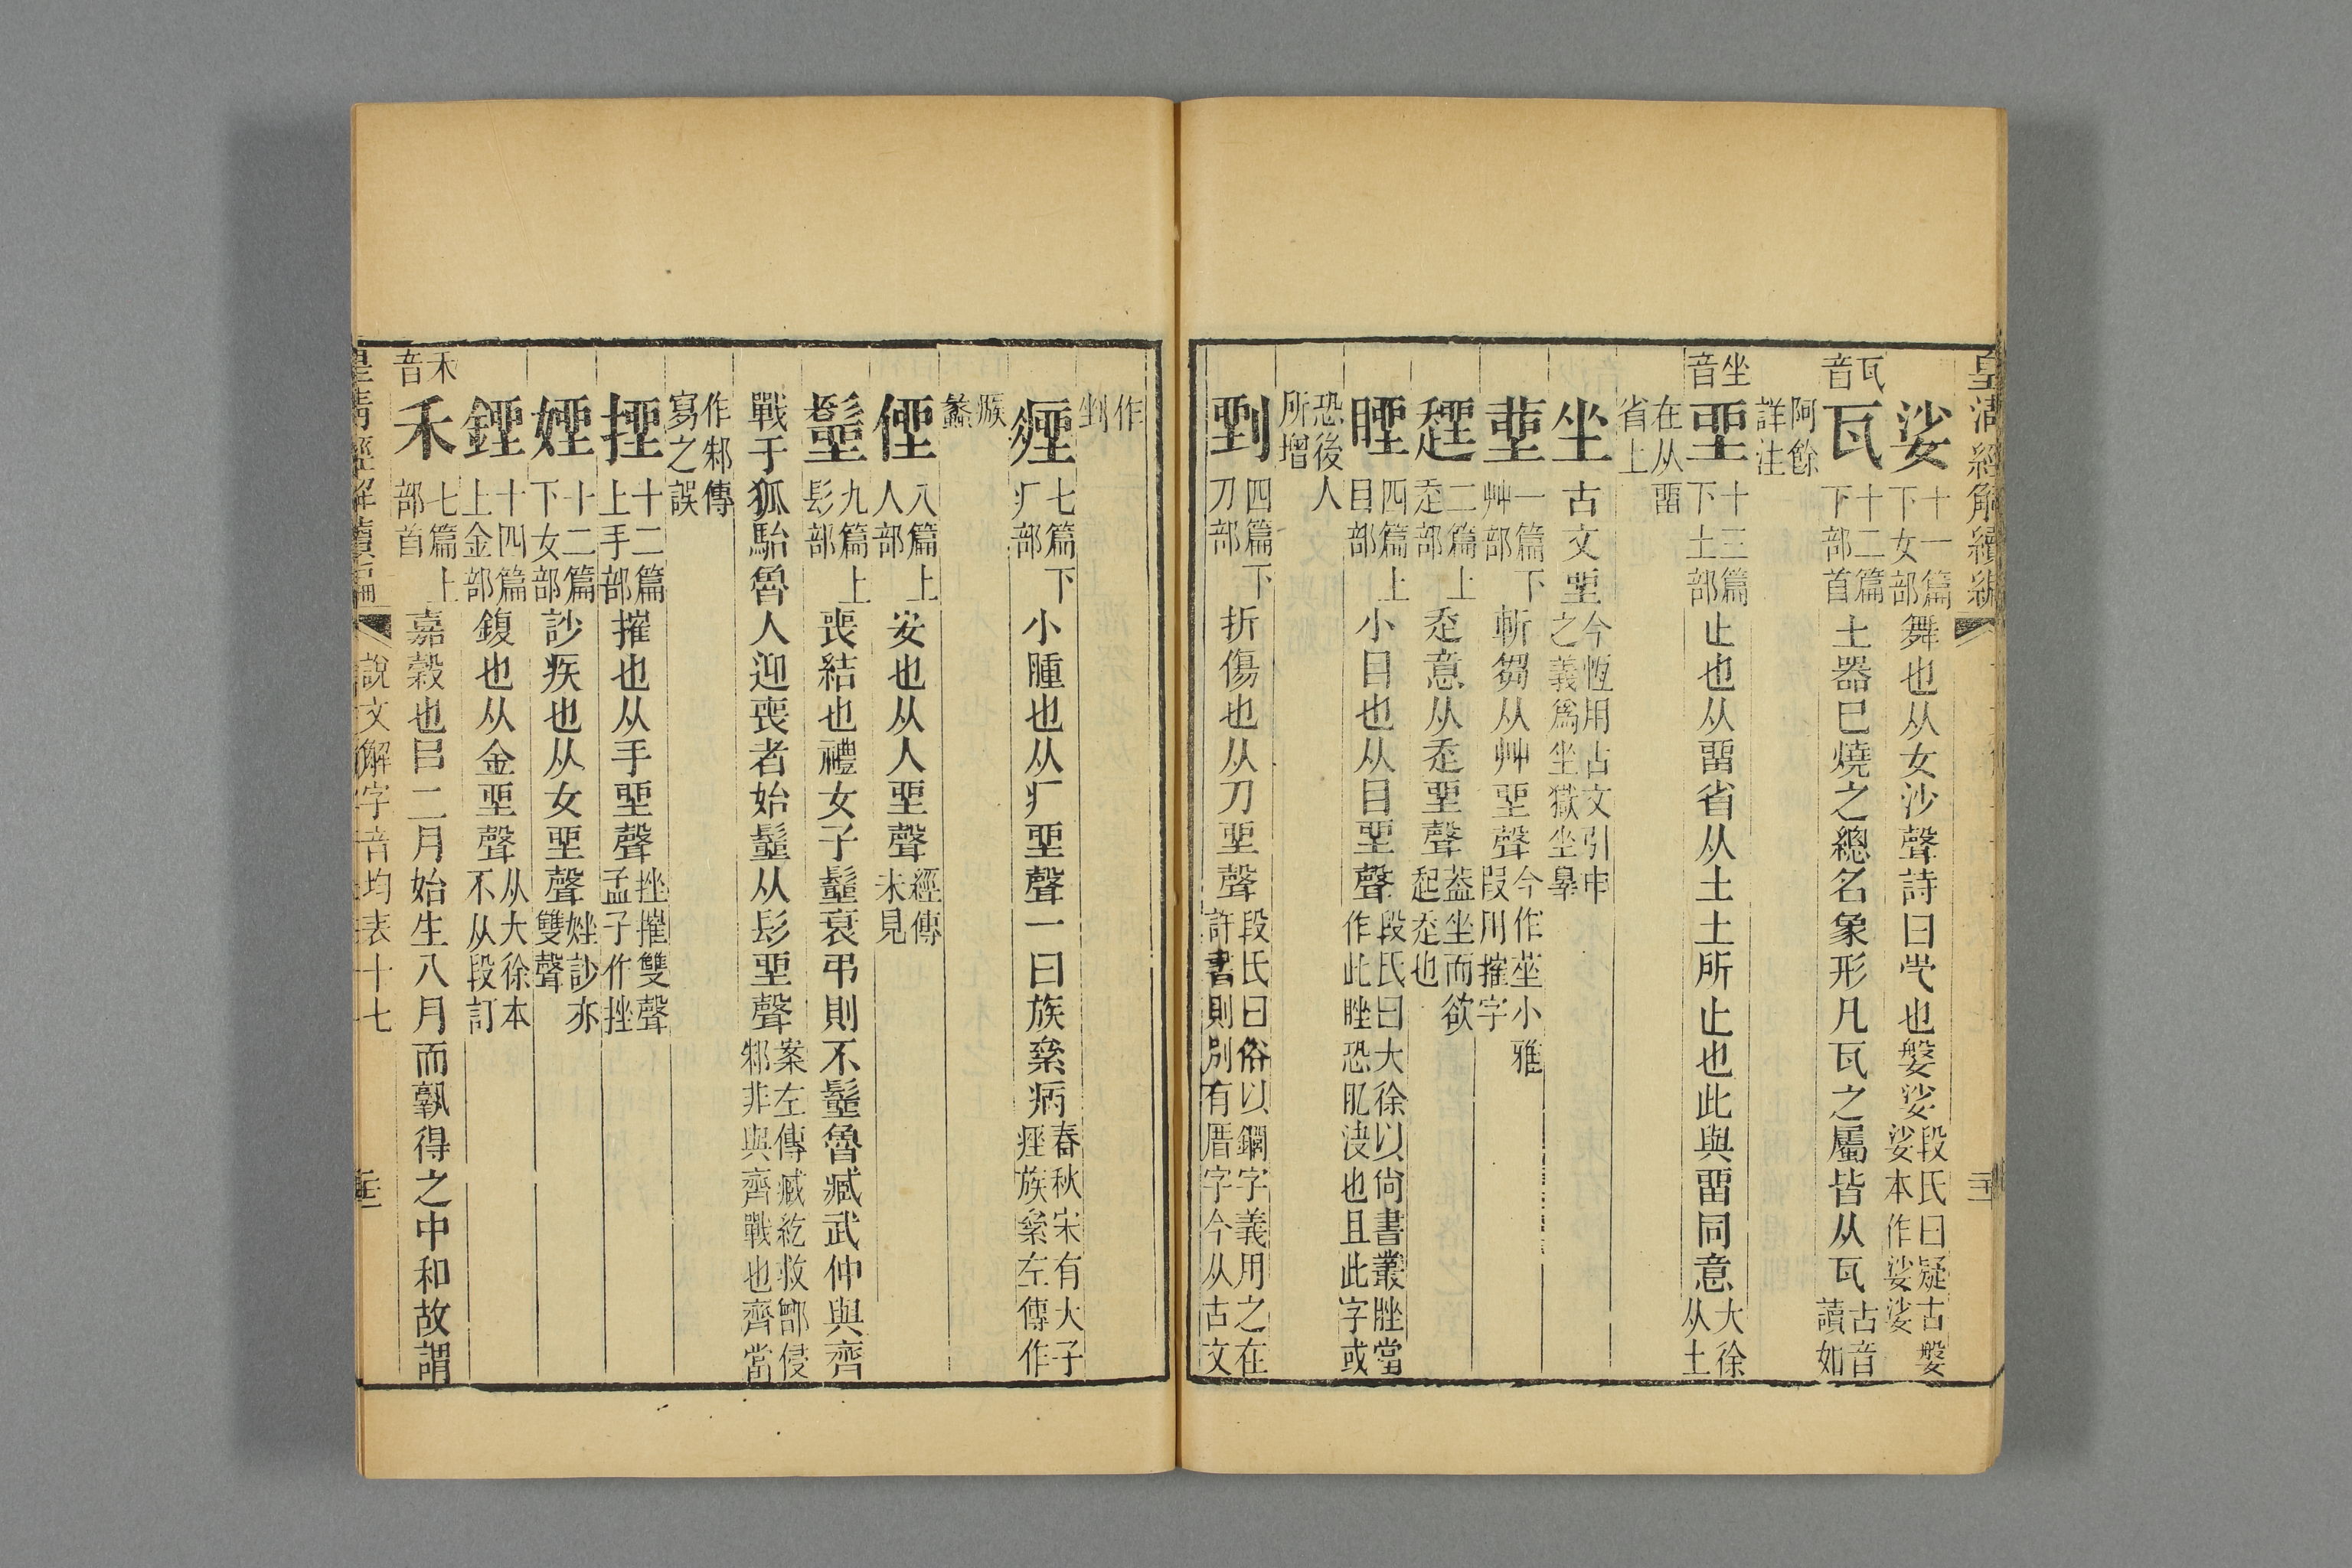 皇清經解續編
娑十一篇下女部舞也从女沙聲詩曰𡴆也媻娑段氏曰疑古媻娑本作娑娑
瓦音瓦十二篇下部首土器已燒之總名象形凡瓦之屬皆从瓦古音讀如
阿餘詳注
坐音𡋲十三篇下土部止也从畱省从土土所止也此與畱同意大徐从土
在从畱省上
坐古文𡋲今恆用古文引申之義爲坐獄坐辠
䓙一篇下艸部斬芻从艸𡋲聲今作莝小雅叚用摧字
二篇上辵部辵意从辵𡋲聲葢坐而欲起辵也
四篇上目部小目也从目𡋲聲段氏曰大徐以尙書叢脞當作此睉恐肊決也且此字或
恐後人所增
四篇下刀部折傷也从刀𡋲聲段氏曰俗以鐗字義用之在許書則別有厝字今从古文
作剉
七篇下疒部小腫也从疒𡋲聲一曰族絫病春秋宋有大子痤族絫左傳作作
瘯蠡
八篇上人部安也从人𡋲聲經傳未見
九篇上髟部喪結也禮女子髽衰弔則不髽魯臧武仲與齊
戰于狐駘魯人迎喪者始髽从髟𡋲聲案左傳臧紇救鄫侵邾非與齊戰也齊當
作邾傳寫之誤
十二篇上手部摧也从手𡋲聲挫摧雙聲孟子作挫
十二篇下女部訬疾也从女𡋲聲㛗訬亦雙聲
十四篇上金部鍑也从金𡋲聲从大徐本不从段訂
禾音禾七篇上部首嘉穀也㠯二月始生八月而孰得之中和故謂
皇清經解續編
說文解字音均表十七